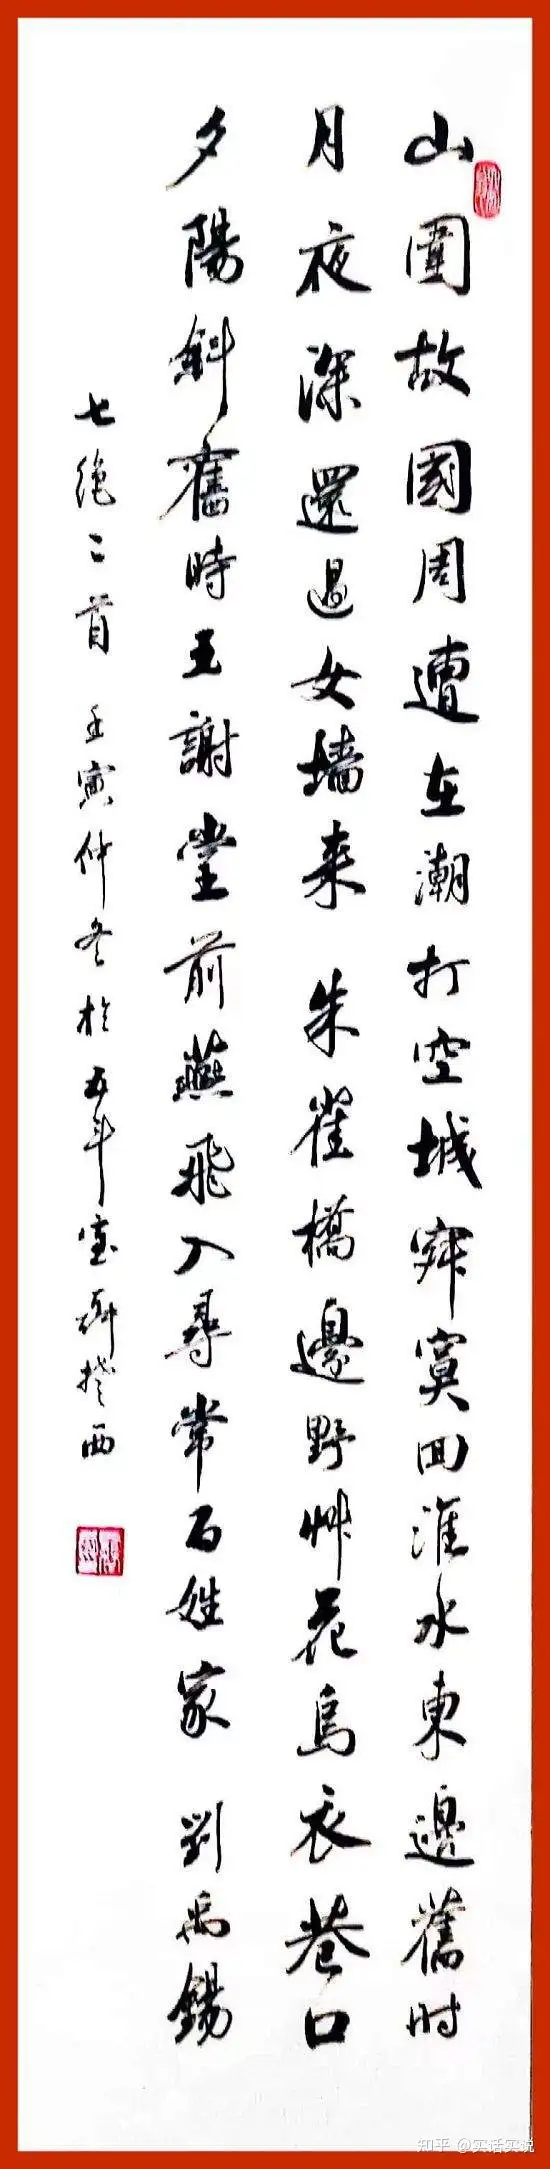 山圍故國周遭在潮打空城寂寞回淮水東邊舊时
月夜深還過女墙来 朱雀橋邊野艸花烏衣巷口
夕陽斜舊時王謝堂前燕飛入尋常百姓家 劉禹錫
七絶二首 壬寅仲冬於五斗室 西
知乎 @实话实说